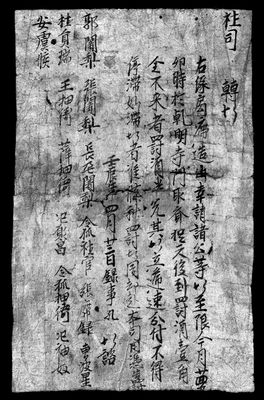 社司 轉帖
右緣局席造出幸請諸公等帖至限今月廿
卯時於乾明寺門取齊捉二人後到罰酒壹角
全不來者罰酒半瓮其帖立遞速分付不得
停滯如滯帖者准條科罰帖周却付本司用憑告罰
壬辰年四月廿三日錄事孔 帖諮
郭闍梨 張闍梨 長延闍梨 令狐社官 張席錄
杜員 王押衙 薛押衙 氾彰昌 令狐押衙 氾袖奴
安虞候